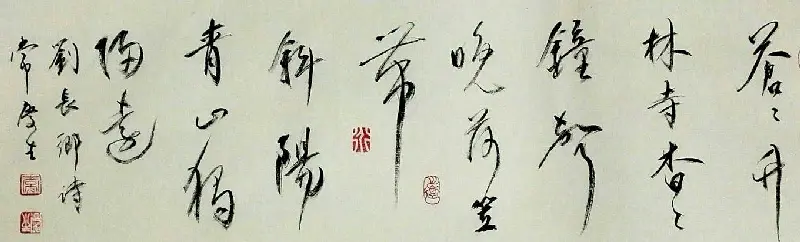 蒼〻竹
林寺杳〻
鐘聲
晚荷笠
帶
斜陽
青山獨
歸遠
劉長卿詩